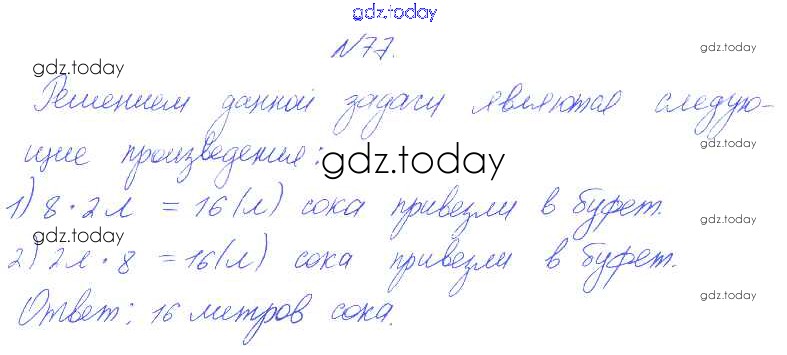 gdz.today
N77.
gdz.today
gdz.today
Решением данной задачи являются следую-
gdz.today
щие произведения:
gdz.today
gdz.today
1) 8 · 2 л = 16 (л) сока привезли в буфет.
gdz.today
gdz.today
2) 2л · 8 = 16 (л) сока привезли в буфет.
gdz.today
Ответ: 16 метров сока.